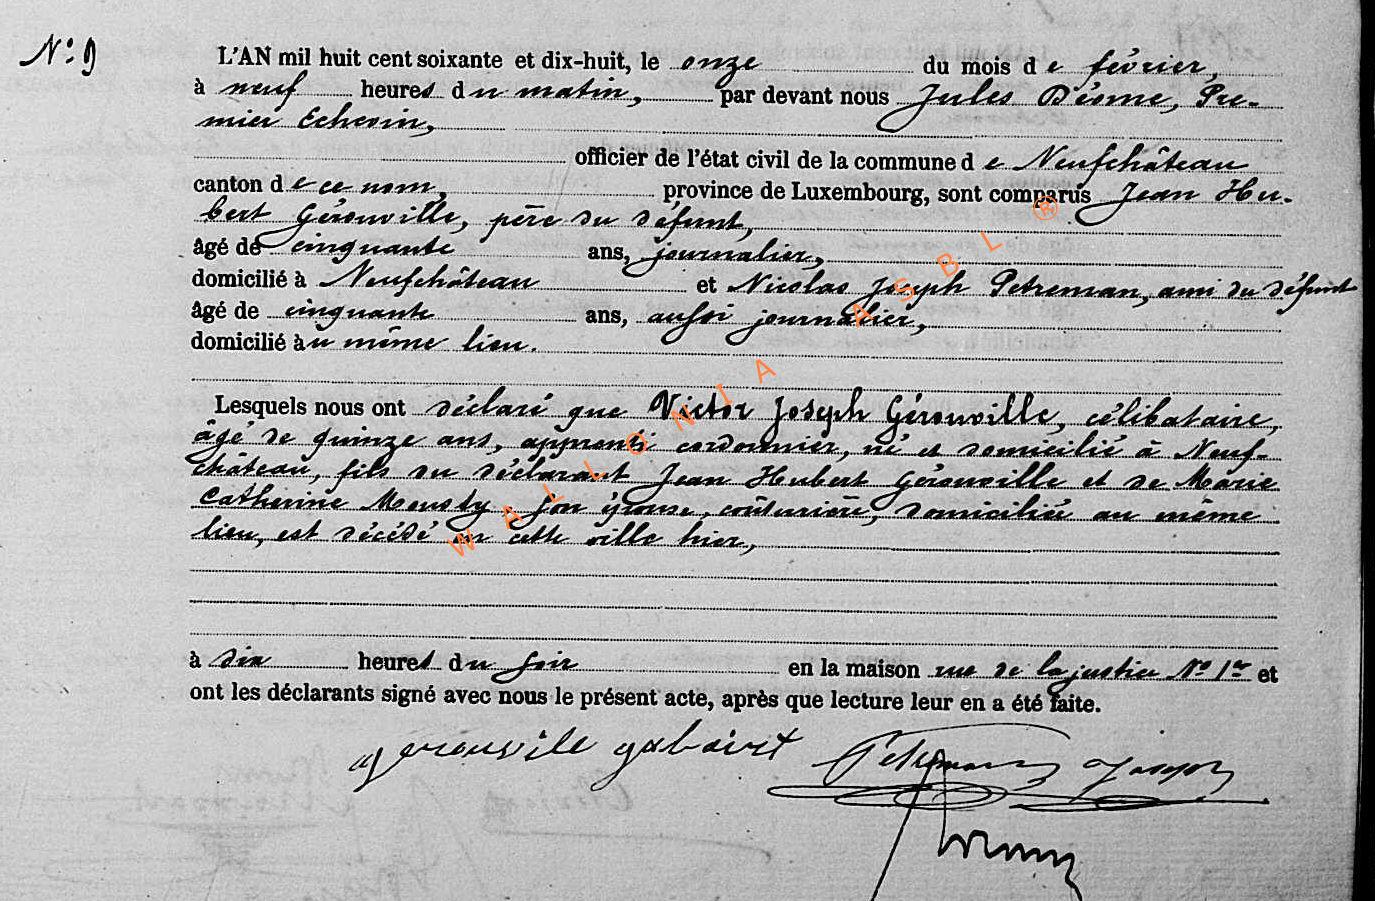 N° 9
L'AN mil huit cent soixante et dix-huit, le onze du mois de février,
à neuf heures du matin, par devant nous Jules Désome, Pre-
mier Echevin,
officier de l'état civil de la commune de Neufchâteau
canton de ce nom, province de Luxembourg, sont comparus Jean Hu-
bert Gérouville, père du défunt,
âgé de cinquante ans, journalier,
domicilié à Neufchâteau et Nicolas Joseph Petreman, ami du défunt
âgé de cinquante ans, aussi journalier,
domicilié au même lieu.
Lesquels nous ont déclaré que Victor Joseph Gérouville, célibataire,
âgé de quinze ans, apprenti cordonnier, né et domicilié à Neuf-
château, fils du déclarant Jean Hubert Gérouville et de Marie
Catherine son épouse, couturière, domiciliée au même
lieu, est décédé en cette ville hier,
à dix heures du soir en la maison rue de la justice N° 1er et
ont les déclarants signé avec nous le présent acte, après que lecture leur en a été faite.
WALLONIA ASBL ®